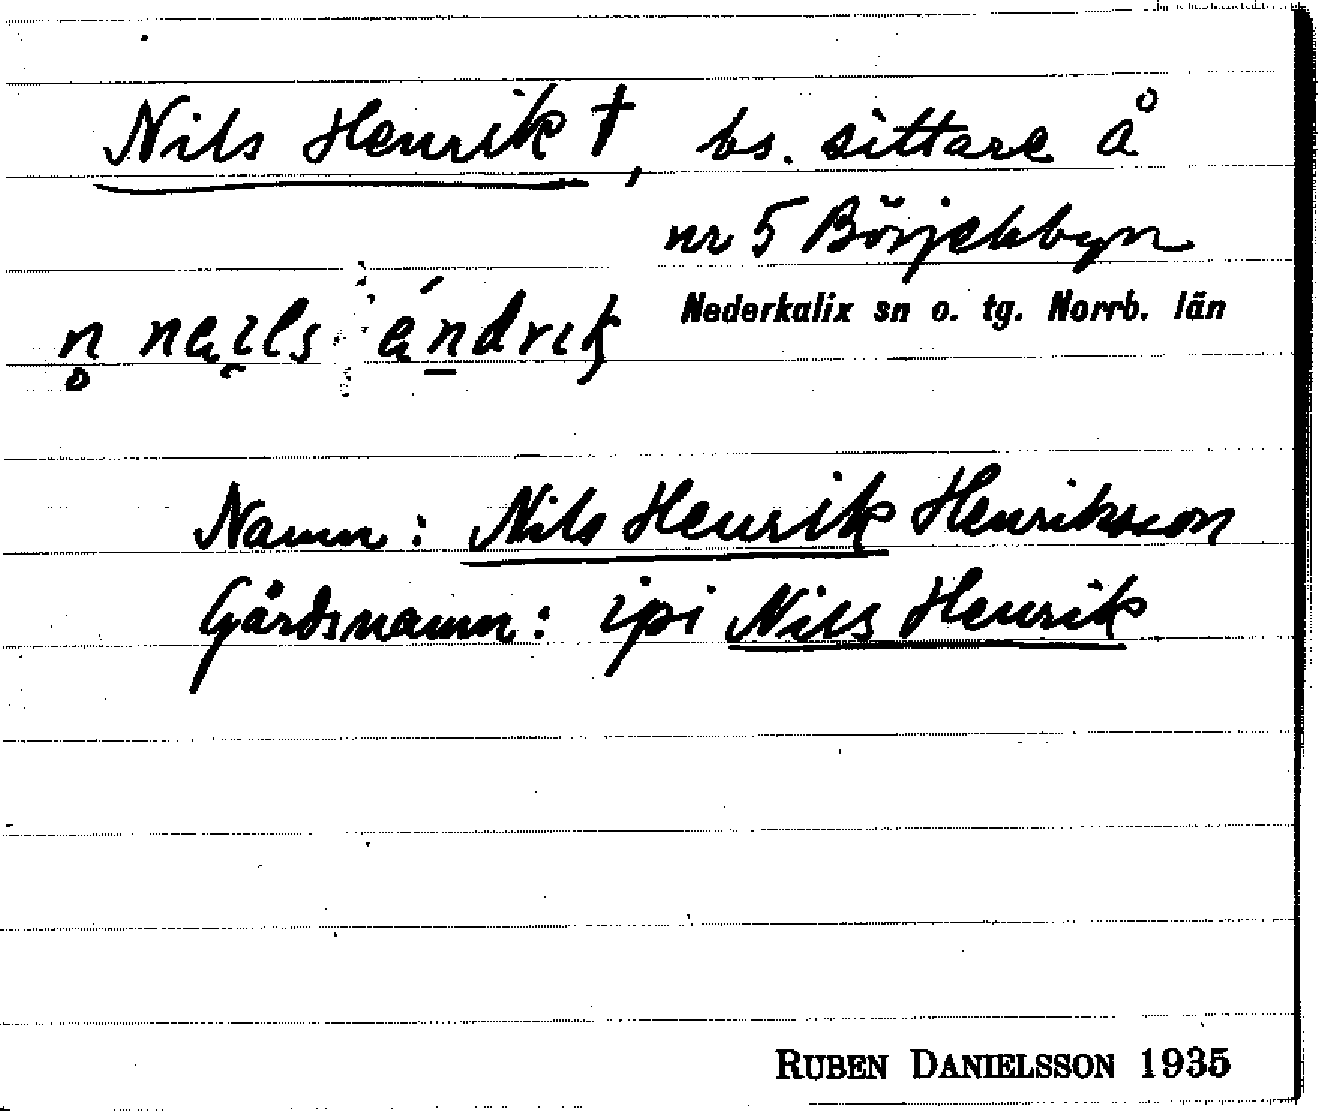 Nils Henrik †, bs. sittare å
nr 5 Börjelsbyn
Nederkalix sn o. tg. Norrb. län
n̥ na̯ils ándrik
Namn: Nils Henrik Henriksson
Gårdsnamn: ipi Nils Henrik
RUBEN DANIELSSON 1935